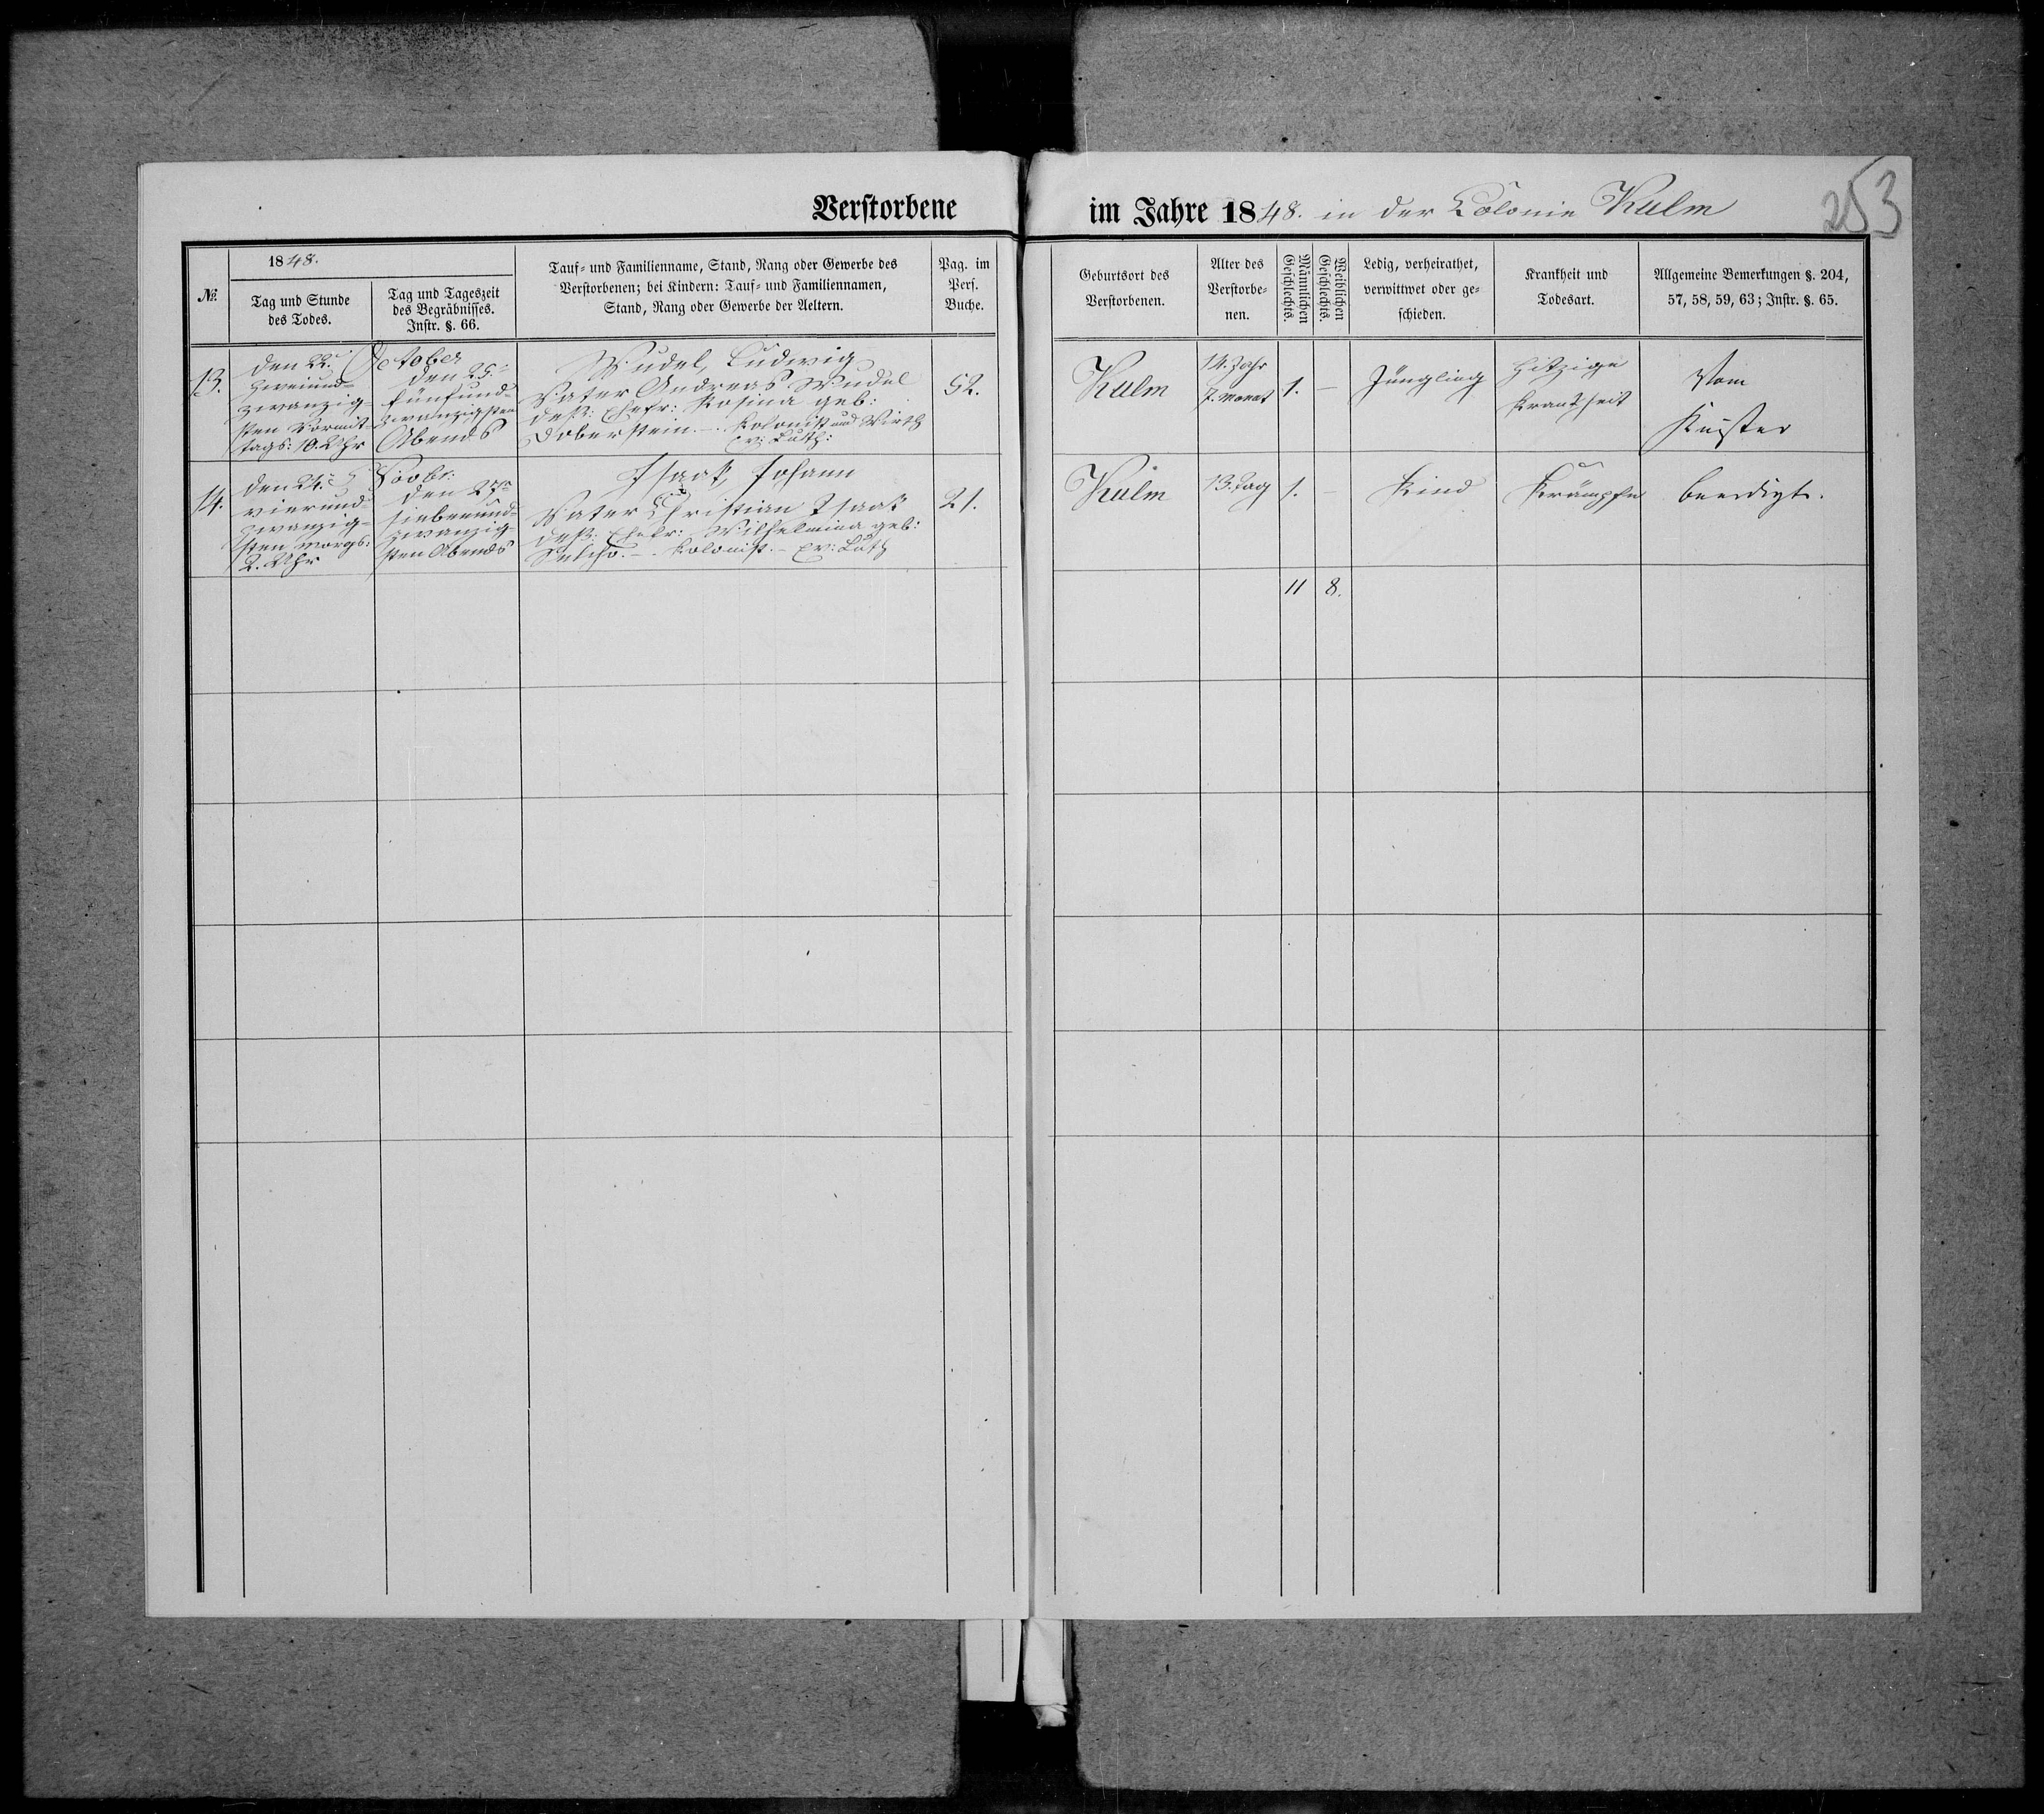 Verstorbene im Jahre 1848. in der Colonie Kulm
253
№.
1848.
Tag und Stunde
des Todes.
Tag und Tageszeit
des Begräbnisses.
Instr. §. 66.
Tauf- und Familienname, Stand, Rang oder Gewerbe des
Verstorbenen; bei Kindern: Tauf- und Familiennamen,
Stand, Rang oder Gewerbe der Aeltern.
Pag. im
Pers.
Buche.
Geburtsort des
Verstorbenen.
Alter des
Verstorbe-
nen.
Männlichen
Geschlechts.
Weiblichen
Geschlechts.
Ledig, verheirathet,
verwittwet oder ge-
schieden.
Krankheit und
Todesart.
Allgemeine Bemerkungen §. 204,
57, 58, 59, 63; Instr. §. 65.
13.
October
den 22.
zweiund-
zwanzig-
sten Vormit-
tags: 10. Uhr
den 25.
fünfund-
zwanzigsten
Abends
Ludwig
Vater Andreas
deß: Ehefr: Rosina geb:
Doberstein. — Kolonist und Wirth
ev: Luth:
52.
Kulm
14. Jahr
7. Monat
1.
—
Jüngling
hitzige
Krankheit
Vom
Küster
14.
den 24.
vierund-
zwanzig-
sten Morgs:
2. Uhr
den 27
siebenund-
zwanzig-
sten Abends
Isaak, Johann
Vater Christian Isaak
deß: Ehefr: Wilhelmina geb:
Kolonist. — ev: Luth
21.
Kulm
13. Tag
1.
—
Kind
Krämpfe
beerdigt.
11
8.